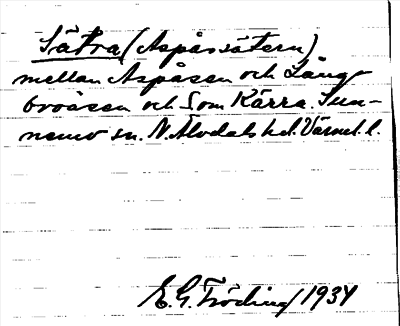 Sätra (Aspåssätern)
mellan Aspåsen och Lång-
broåsen och Som Kärra. Sun-
nemo sn. N. Älvdals hd. Värml. l.
E. G. Fröding 1934